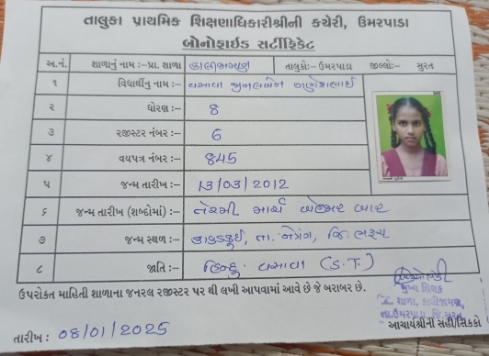 તાલુકા પ્રાથમિક શિક્ષણાધિકારીશ્રીની કચેરી, ઉમરપાડા
બોનોફાઇડ સર્ટીફિકેટ
અ.નં. શાળાનું નામ :- પ્રા. શાળા તાલુકો:- ઉમરપાડા જીલ્લો:- સુરત
૧ વિદ્યાર્થીનું નામ :- વસાવા
૨ ધોરણ :- 8
૩ રજીસ્ટર નંબર :- 6
૪ વયપત્ર નંબર :- 845
૫ જન્મ તારીખ :- 13/03/2012
૬ જન્મ તારીખ (શબ્દોમાં) :- તેરમી માર્ચ બાર
૭ જન્મ સ્થળ :- તા. નેત્રંગ, જિ. ભરૂચ
૮ જાતિ :- હિન્દુ વસાવા (S.T.)
ઉપરોક્ત માહિતી શાળાના જનરલ રજીસ્ટર પર થી લખી આપવામાં આવે છે જે બરાબર છે.
મુખ્ય શિક્ષક
તા.ઉમરપાડા, જિ. સુરત
તારીખ : 08/01/2025 આચાર્યશ્રીની સહી/સિક્કો